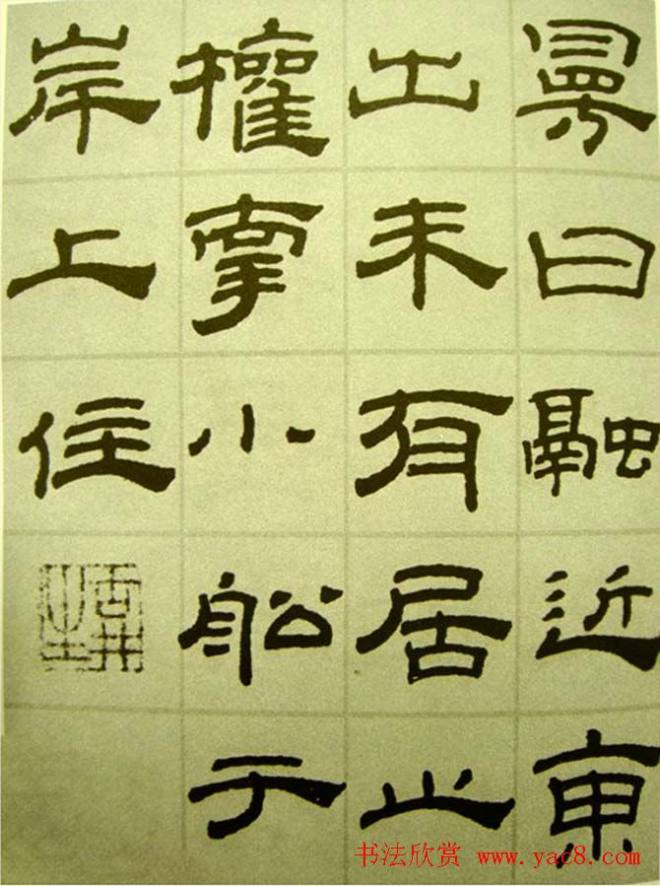 曰融近東
出未有居止
權牽小舩于
岸上住
书法欣赏 www.yac8.com